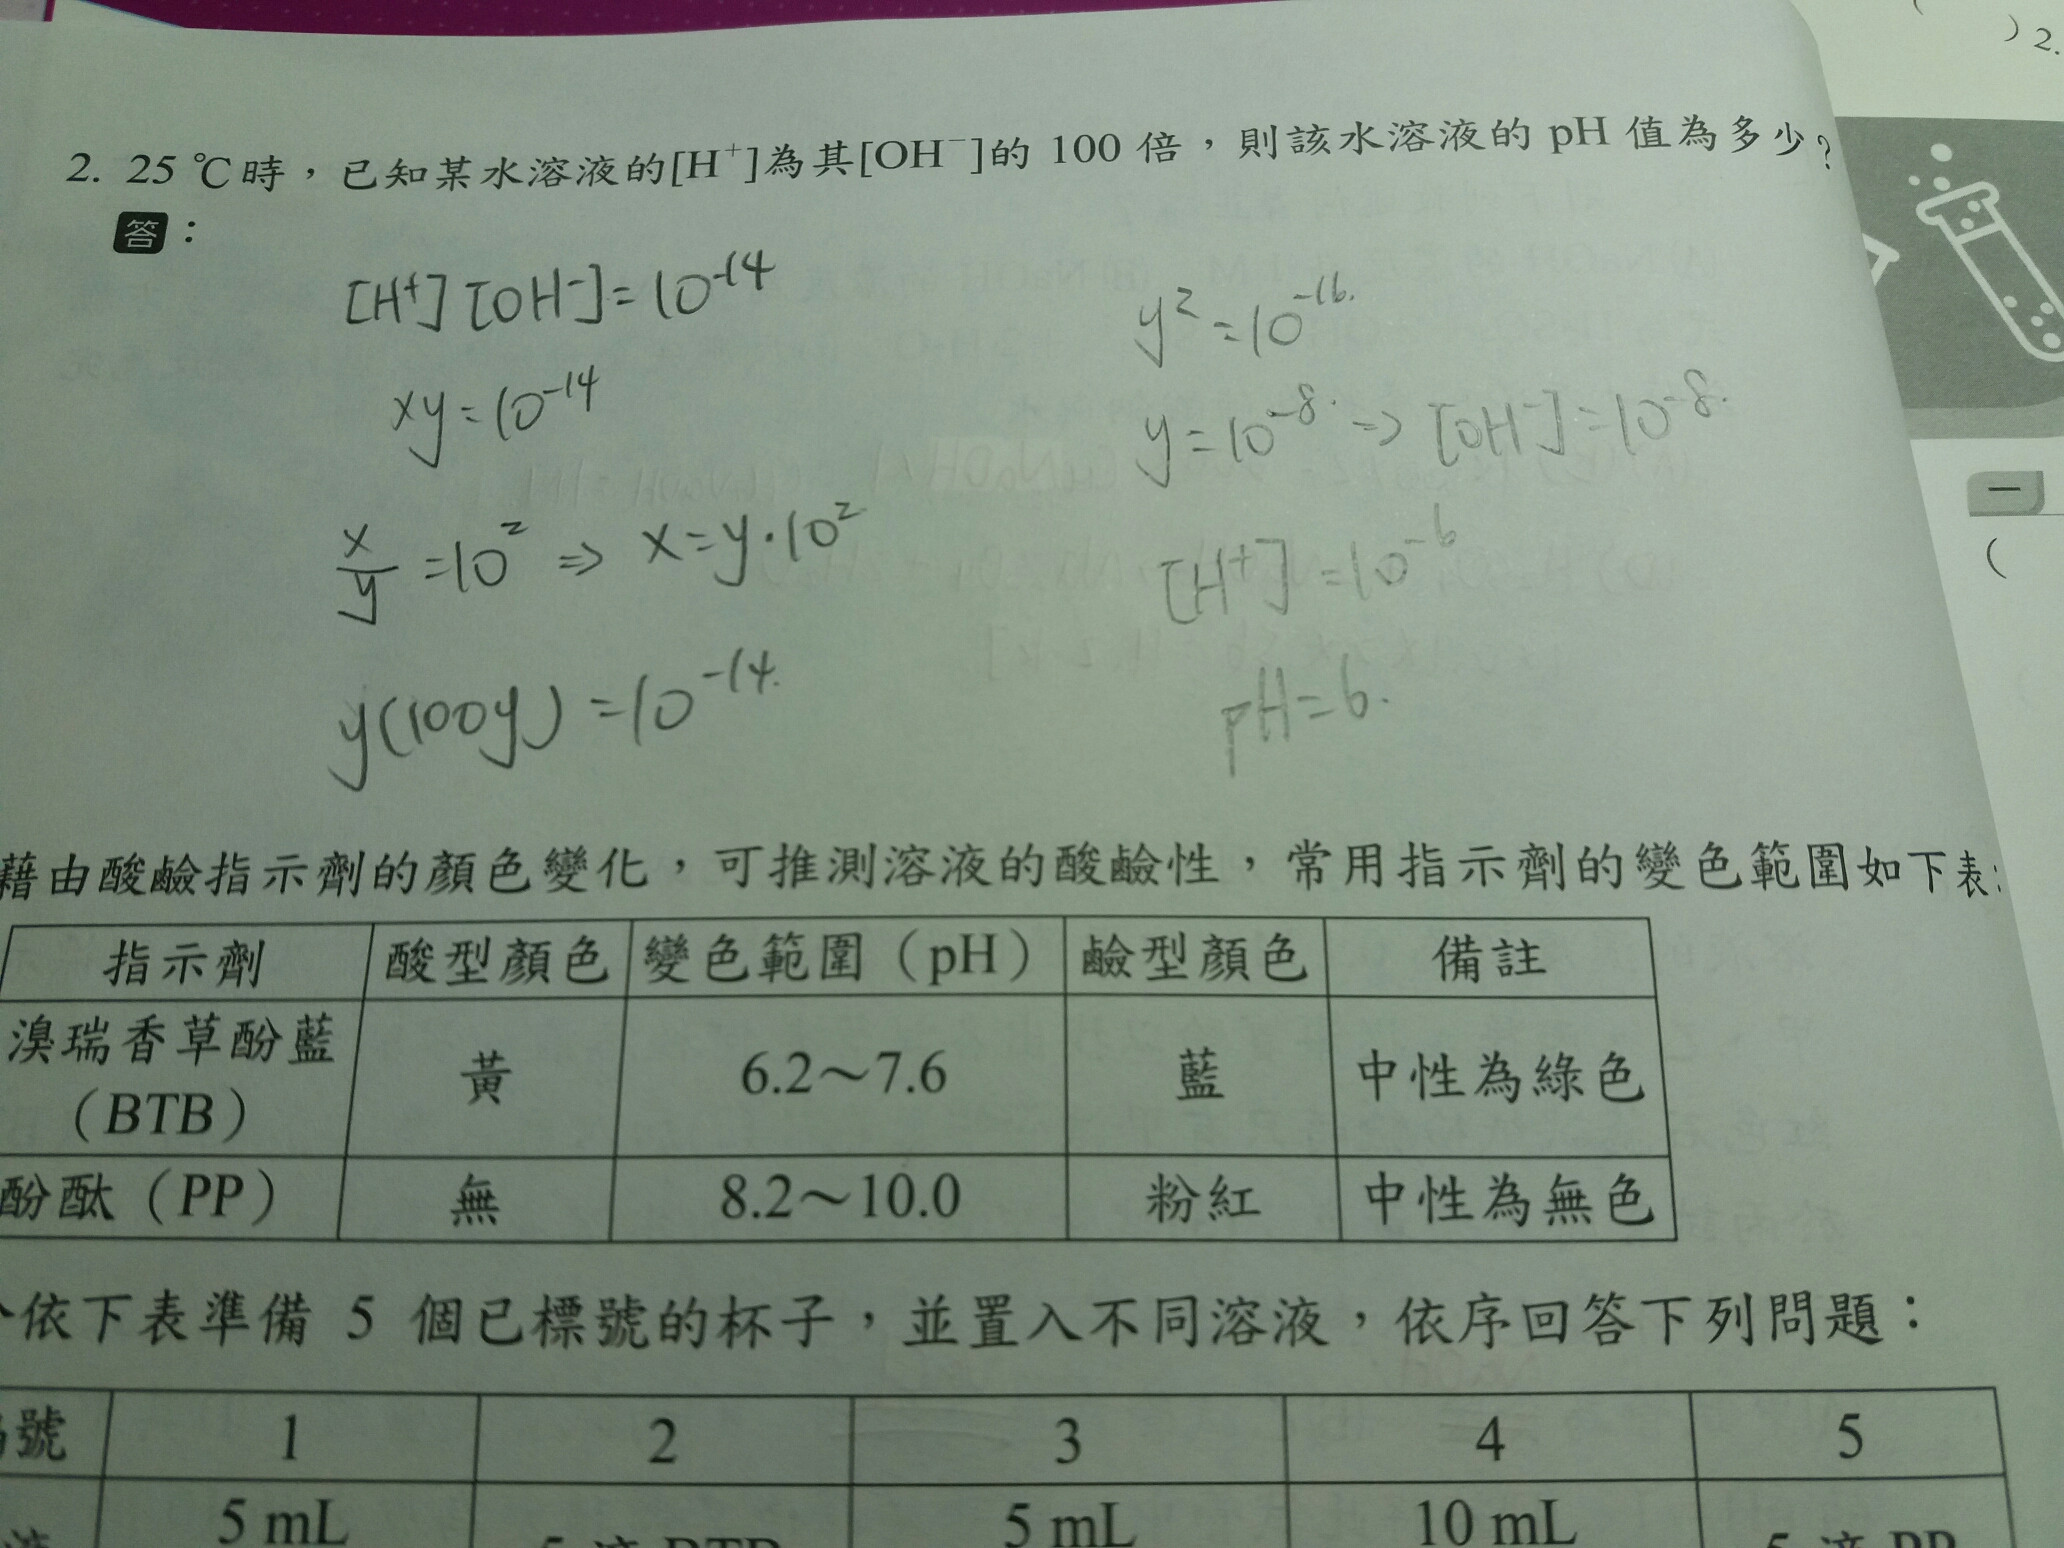 ) 2.
2. 25 ℃時，已知某水溶液的[H⁺]為其[OH⁻]的 100 倍，則該水溶液的 pH 值為多少？
答：
[H⁺][OH⁻]=10⁻¹⁴
xy=10⁻¹⁴
x/y=10² ⇒ x=y·10²
y(100y)=10⁻¹⁴.
y²=10⁻¹⁶.
y=10⁻⁸. ⇒ [OH⁻]=10⁻⁸.
[H⁺]=10⁻⁶
pH=6.
一
(
藉由酸鹼指示劑的顏色變化，可推測溶液的酸鹼性，常用指示劑的變色範圍如下表：
指示劑 酸型顏色 變色範圍（pH） 鹼型顏色 備註
溴瑞香草酚藍（BTB） 黃 6.2～7.6 藍 中性為綠色
酚酞（PP） 無 8.2～10.0 粉紅 中性為無色
依下表準備 5 個已標號的杯子，並置入不同溶液，依序回答下列問題：
號 1 2 3 4 5
5 mL 5 滴 BTB 5 mL 10 mL 5 滴 PP